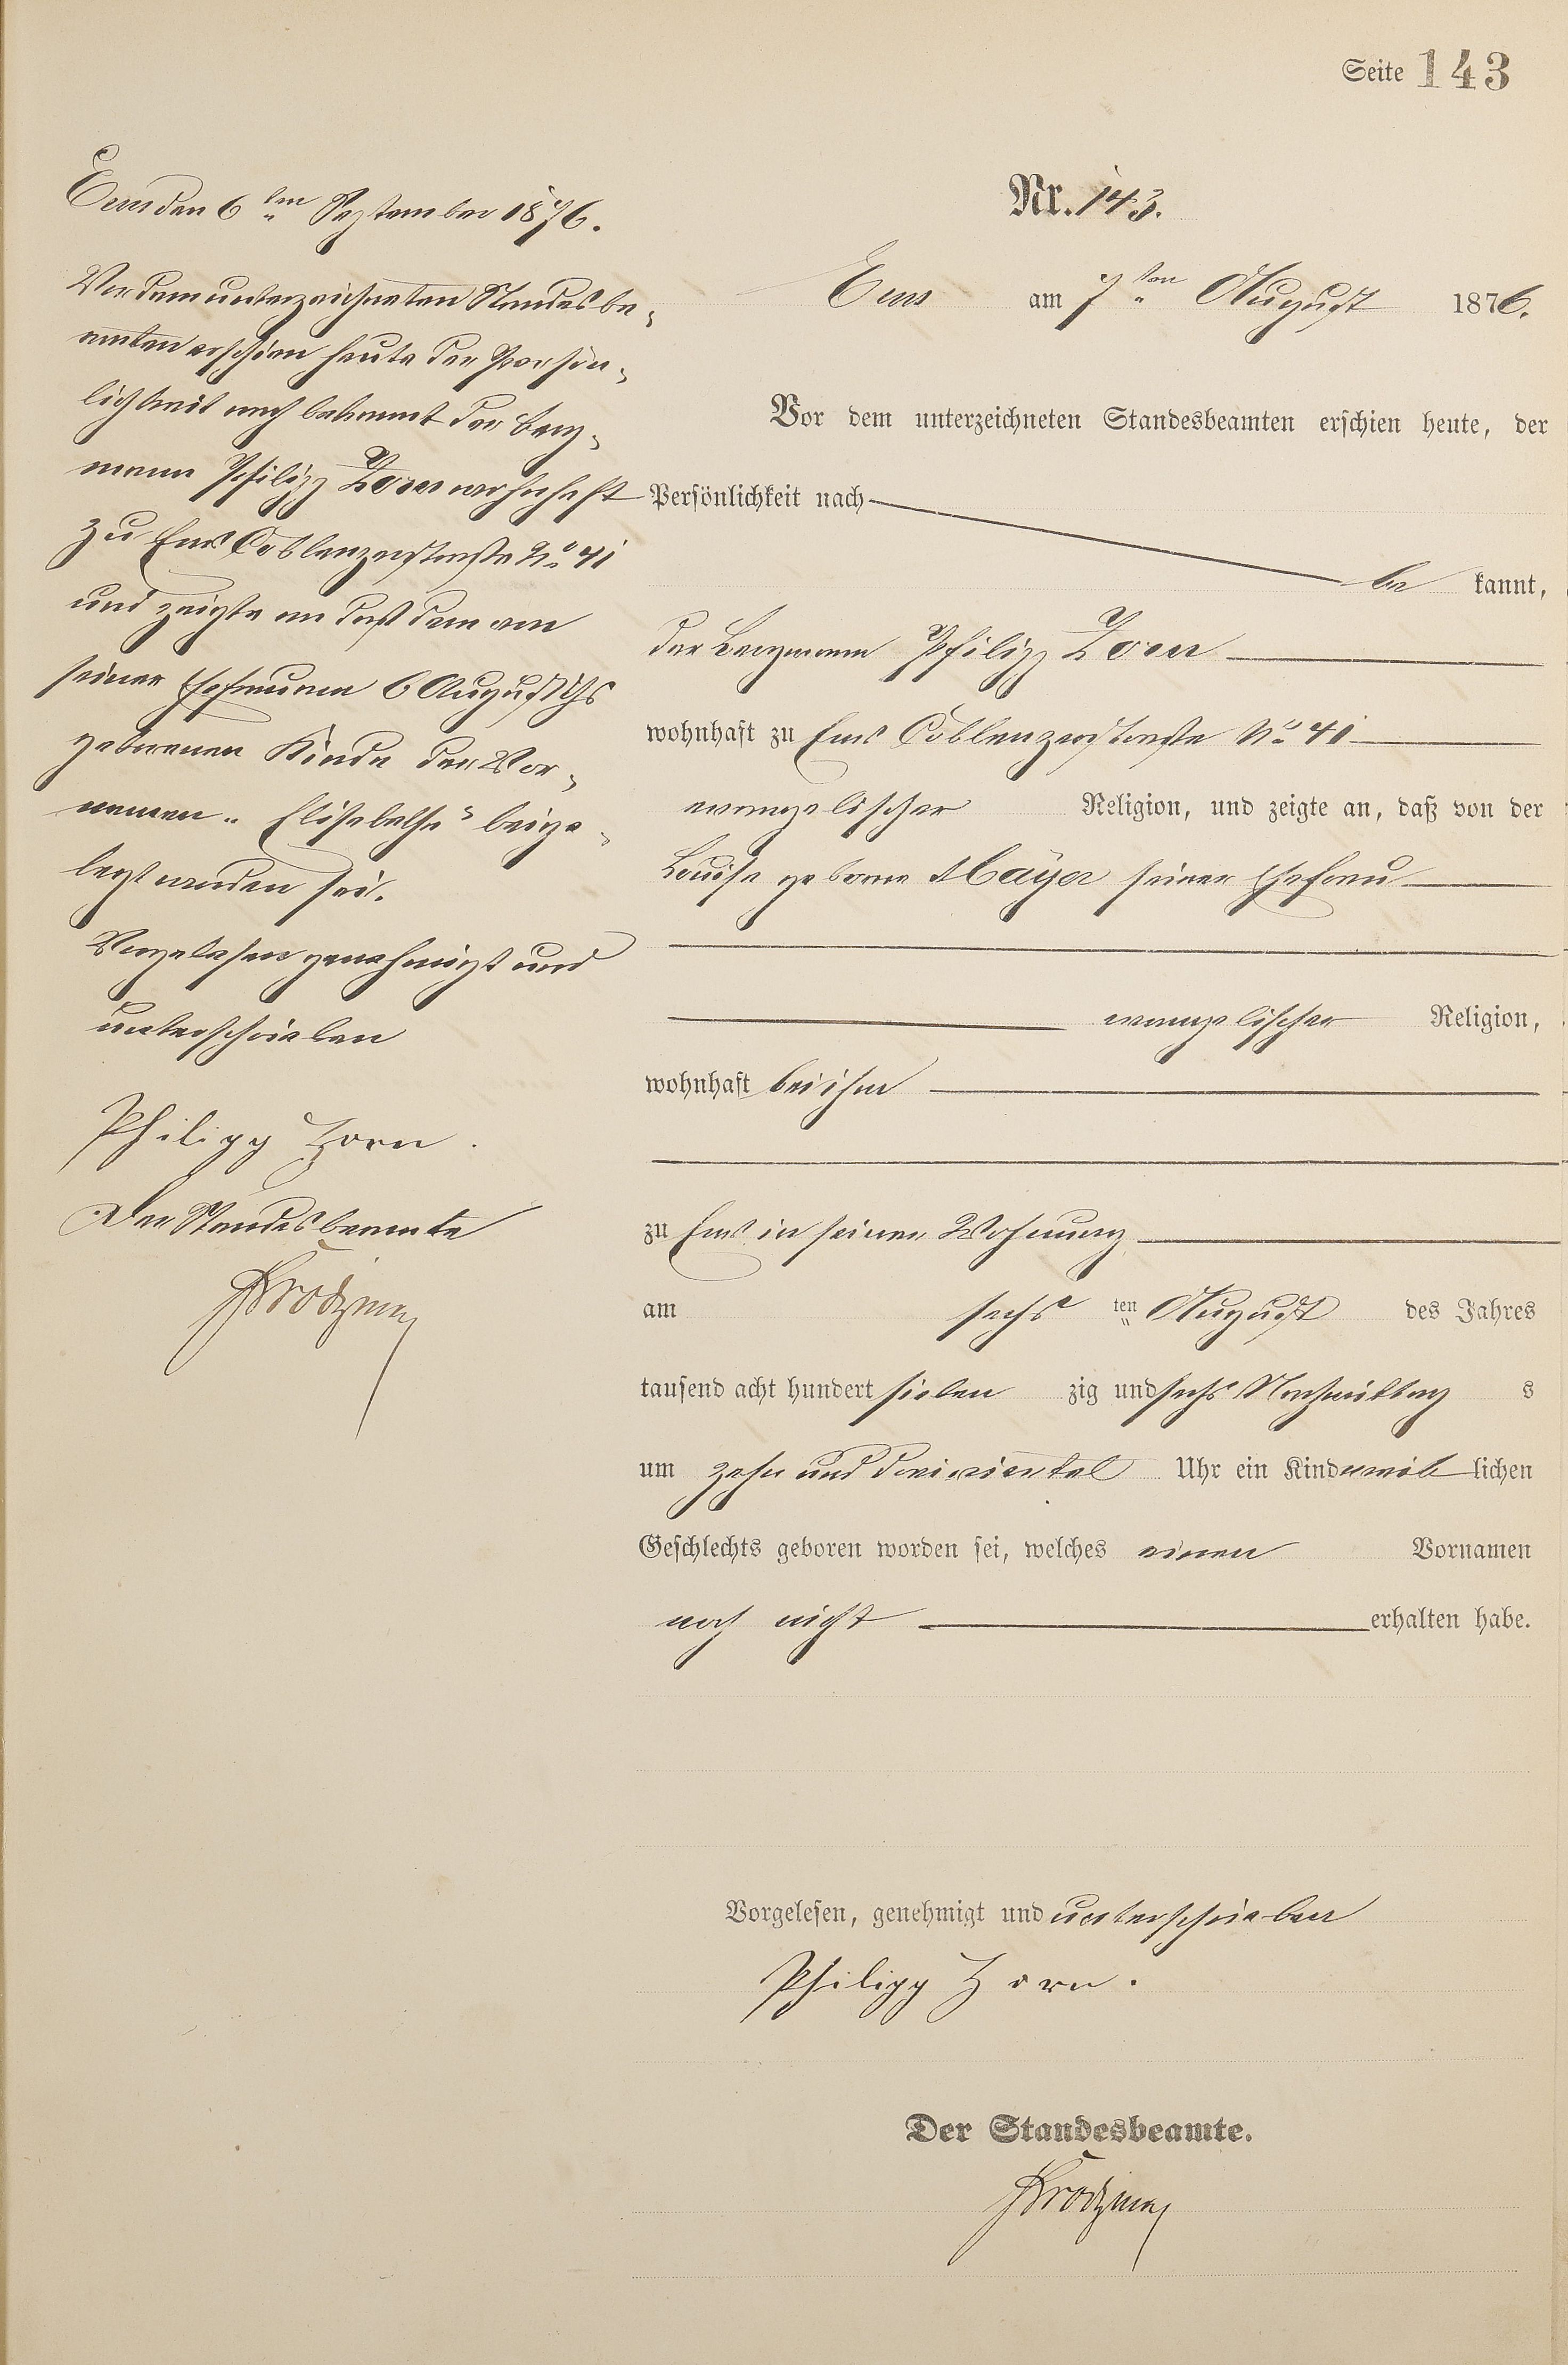 Seite 143
Ems den 6ten September 1876.
Vor dem unterzeichneten Standesbe-
amten erschien heute der Persön-
lichkeit nach bekannt der Berg-
mann Philipp Zorn wohnhaft
zu Ems Coblenzerstraße No 41
und zeigte an daß dem von
seiner Ehefrau am 6 August ds Js
geborenen Kinde der Vor-
namen „Elisabetha“ beige-
legt worden sei.
Vorgelesen genehmigt und
unterschrieben
Philipp Zorn.
Der Standesbeamte
Nr. 143.
Ems am 7ten August 1876.
Vor dem unterzeichneten Standesbeamten erschien heute, der
Persönlichkeit nach
be kannt,
der Bergmann Philipp Zorn
wohnhaft zu Ems Coblenzerstraße No 41
evangelischer Religion, und zeigte an, daß von der
Louise geborne Mayer seiner Ehefrau
evangelischer Religion,
wohnhaft bei ihm
zu Ems in seiner Wohnung
am sechs ten August des Jahres
tausend acht hundert sieben zig und sechs Nachmittag s
um zehn und dreiviertel Uhr ein Kind weib lichen
Geschlechts geboren worden sei, welches einen Vornamen
noch nicht erhalten habe.
Vorgelesen, genehmigt und unterschrieben
Philipp Zorn.
Der Standesbeamte.